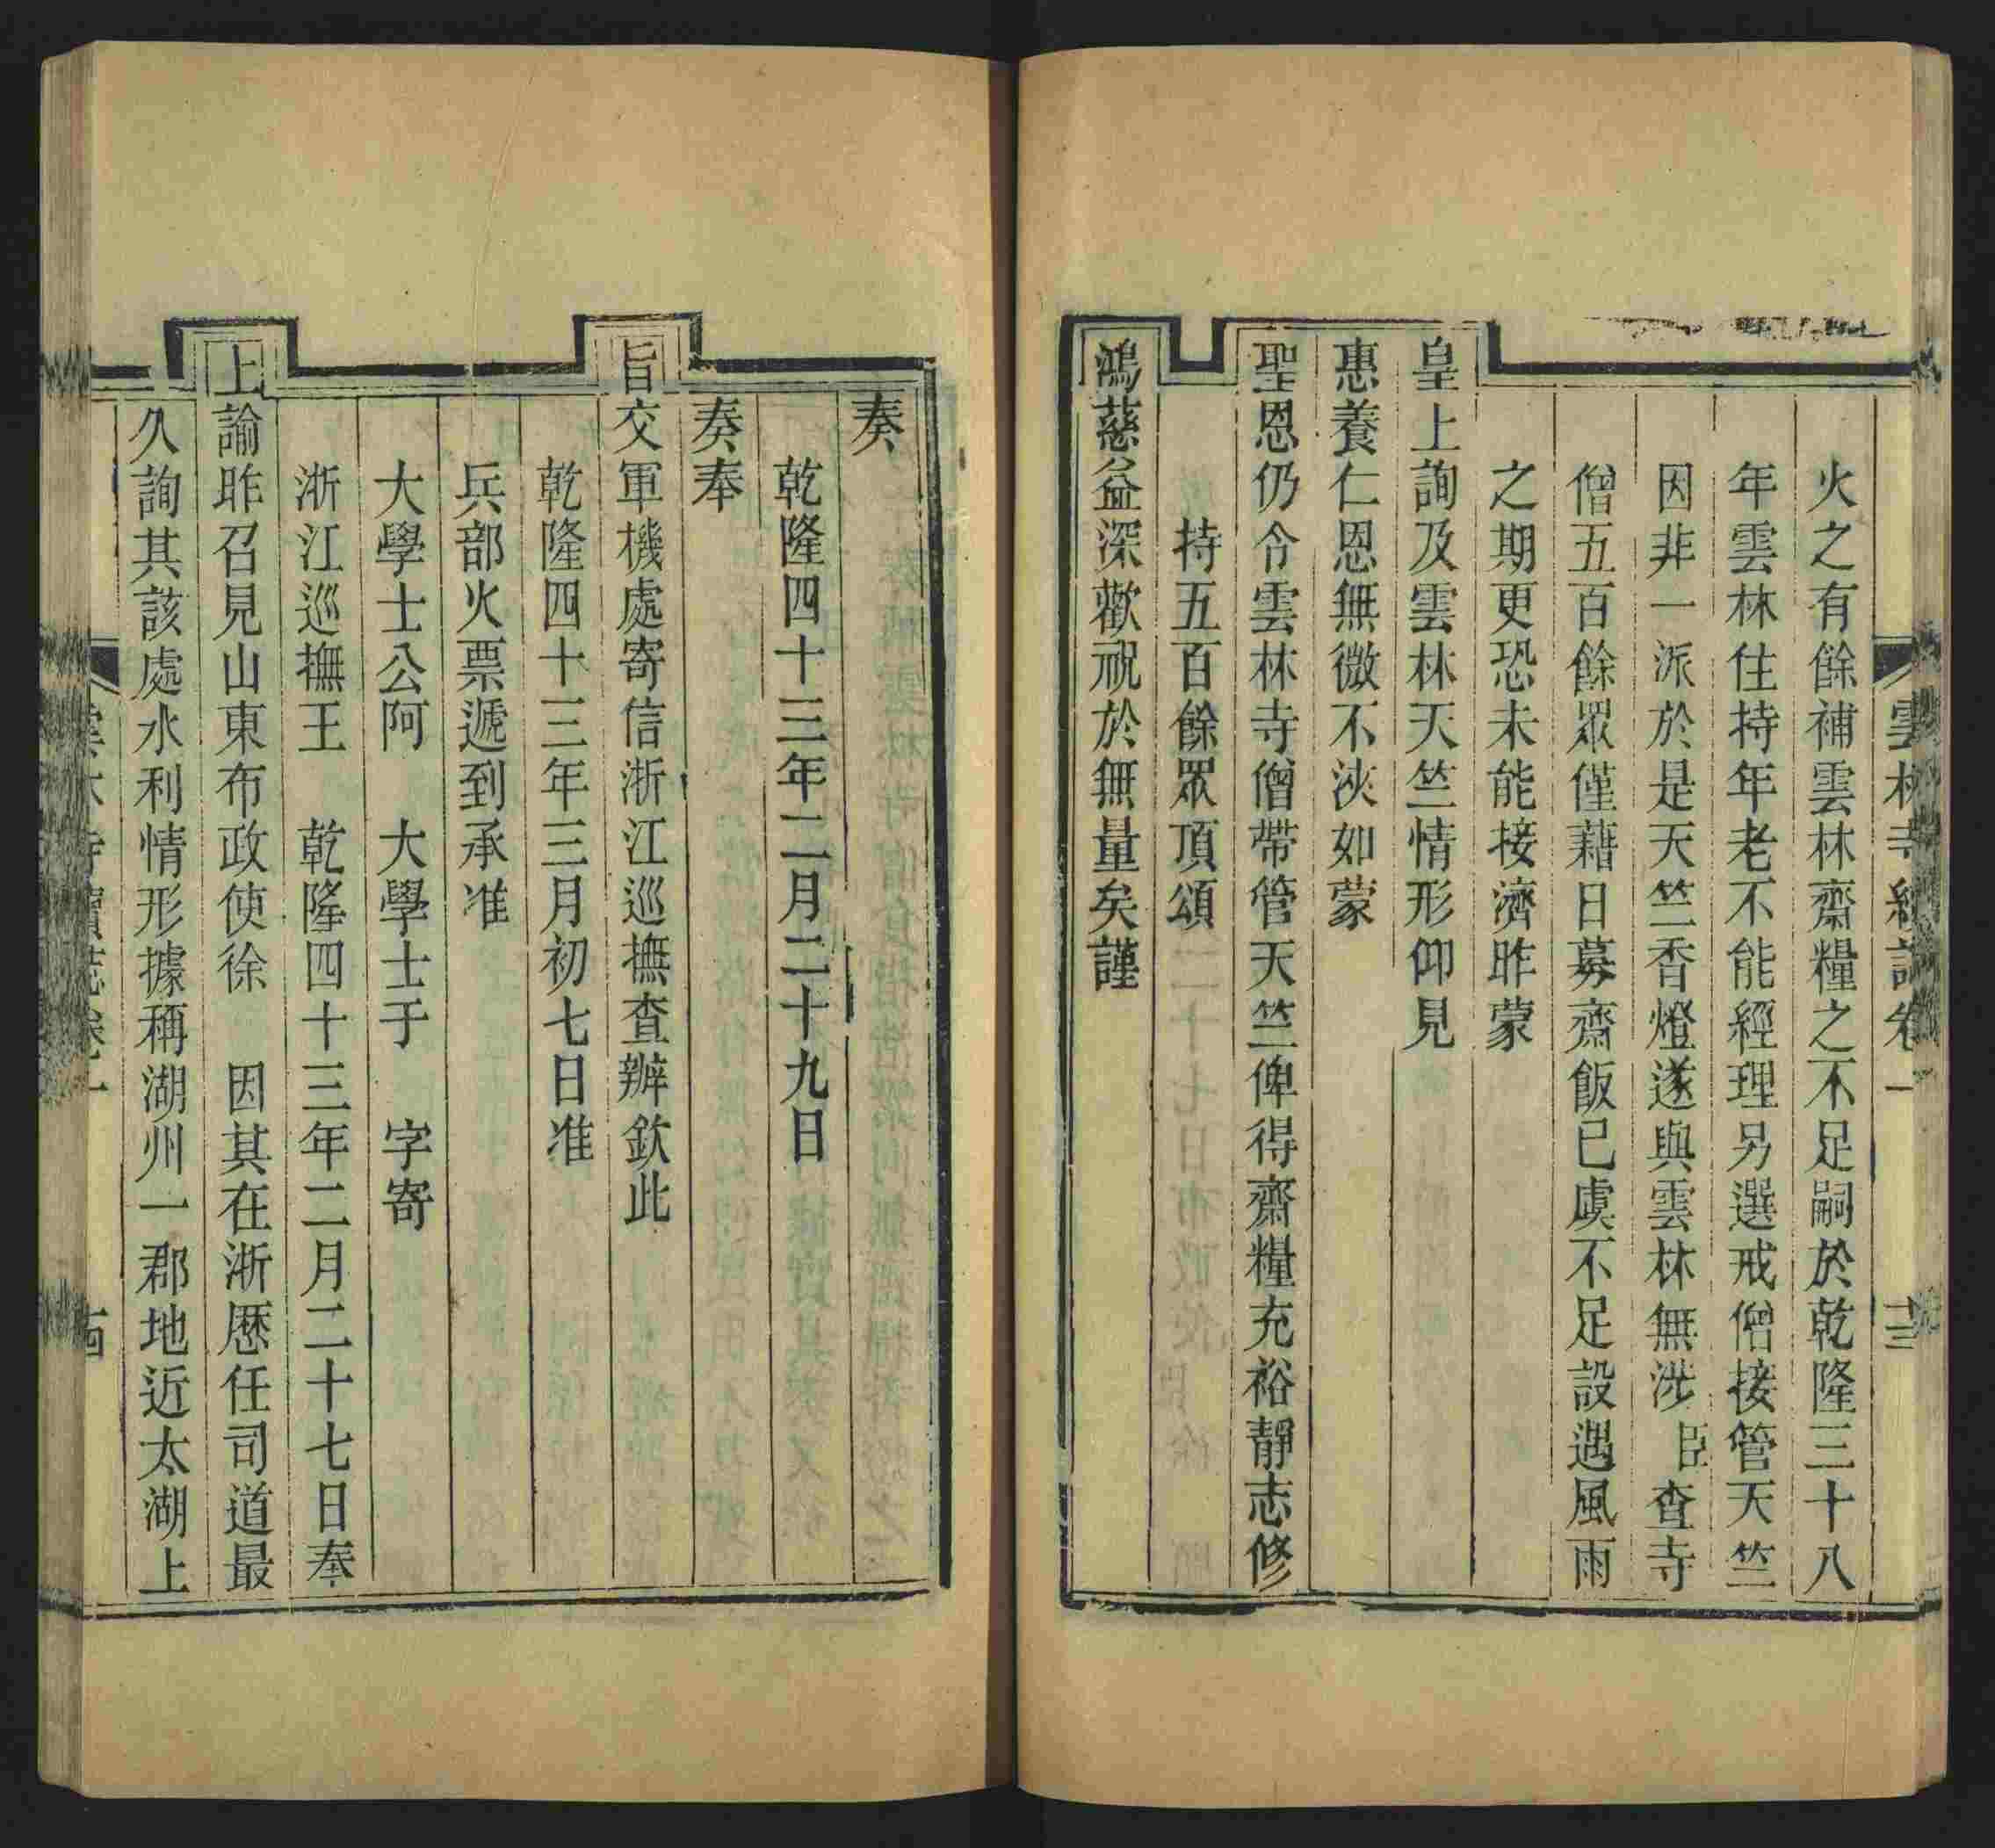 雲林寺續誌卷一 十三
火之有餘補雲林齋糧之不足嗣於乾隆三十八
年雲林住持年老不能經理另選戒僧接管天竺
因非一派於是天竺香燈遂與雲林無涉臣查寺
僧五百餘眾僅藉日募齋飯已虞不足設遇風雨
之期更恐未能接濟昨蒙
皇上詢及雲林天竺情形仰見
惠養仁恩無微不浹如蒙
聖恩仍令雲林寺僧帶管天竺俾得齋糧充裕靜志修
持五百餘眾頂頌
鴻慈益深歡祝於無量矣謹
奏
乾隆四十三年二月二十九日
奏奉
旨交軍機處寄信浙江巡撫查辦欽此
乾隆四十三年三月初七日准
兵部火票遞到承准
大學士公阿 大學士于 字寄
浙江巡撫王 乾隆四十三年二月二十七日奉
上諭昨召見山東布政使徐 因其在浙歷任司道最
久詢其該處水利情形據稱湖州一郡地近太湖上
雲林寺續誌卷一 十四